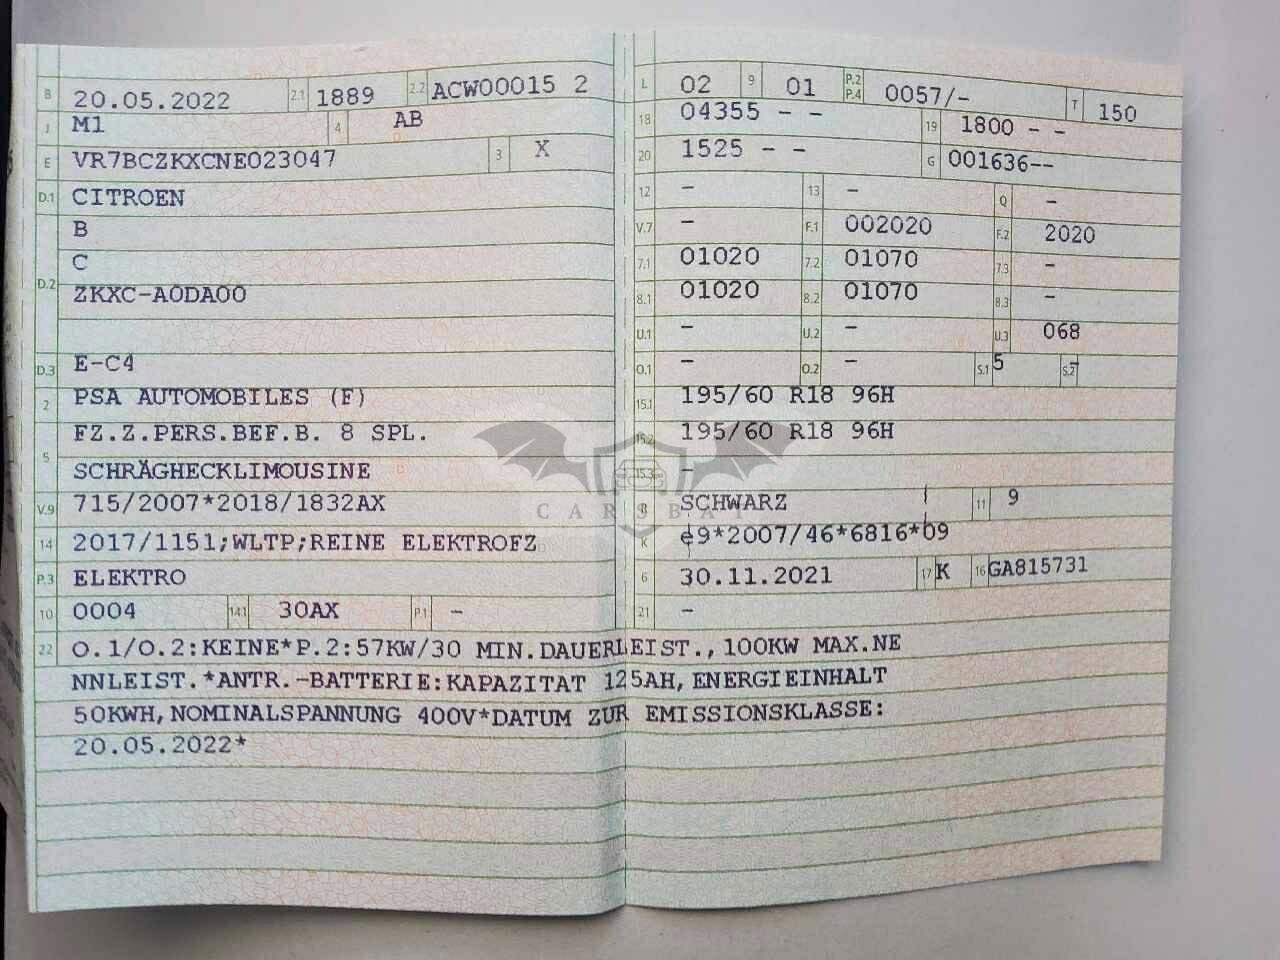 B 20.05.2022 2.1 1889 2.2 ACW00015 2
J M1 4 AB
E VR7BCZKXCNE023047 3 X
D.1 CITROEN
D.2 B
C
ZKXC-A0DA00
D.3 E-C4
2 PSA AUTOMOBILES (F)
5 FZ.Z.PERS.BEF.B. 8 SPL.
SCHRÄGHECKLIMOUSINE
V.9 715/2007*2018/1832AX
14 2017/1151;WLTP;REINE ELEKTROFZ
P.3 ELEKTRO
10 0004 14.1 30AX P.1 -
L 02 9 01 P.2 P.4 0057/- T 150
18 04355 - - 19 1800 - -
20 1525 - - G 001636--
12 - 13 - Q -
V.7 - F.1 002020 F.2 2020
7.1 01020 7.2 01070 7.3 -
8.1 01020 8.2 01070 8.3 -
U.1 - U.2 - U.3 068
O.1 - O.2 - S.1 5 S.2 -
15.1 195/60 R18 96H
15.2 195/60 R18 96H
15.3 -
R SCHWARZ 11 9
K e9*2007/46*6816*09
6 30.11.2021 17 K 16 GA815731
21 -
22 O.1/O.2:KEINE*P.2:57KW/30 MIN.DAUERLEIST.,100KW MAX.NE
NNLEIST.*ANTR.-BATTERIE:KAPAZITAT 125AH,ENERGIEINHALT
50KWH,NOMINALSPANNUNG 400V*DATUM ZUR EMISSIONSKLASSE:
20.05.2022*
CARSBAT